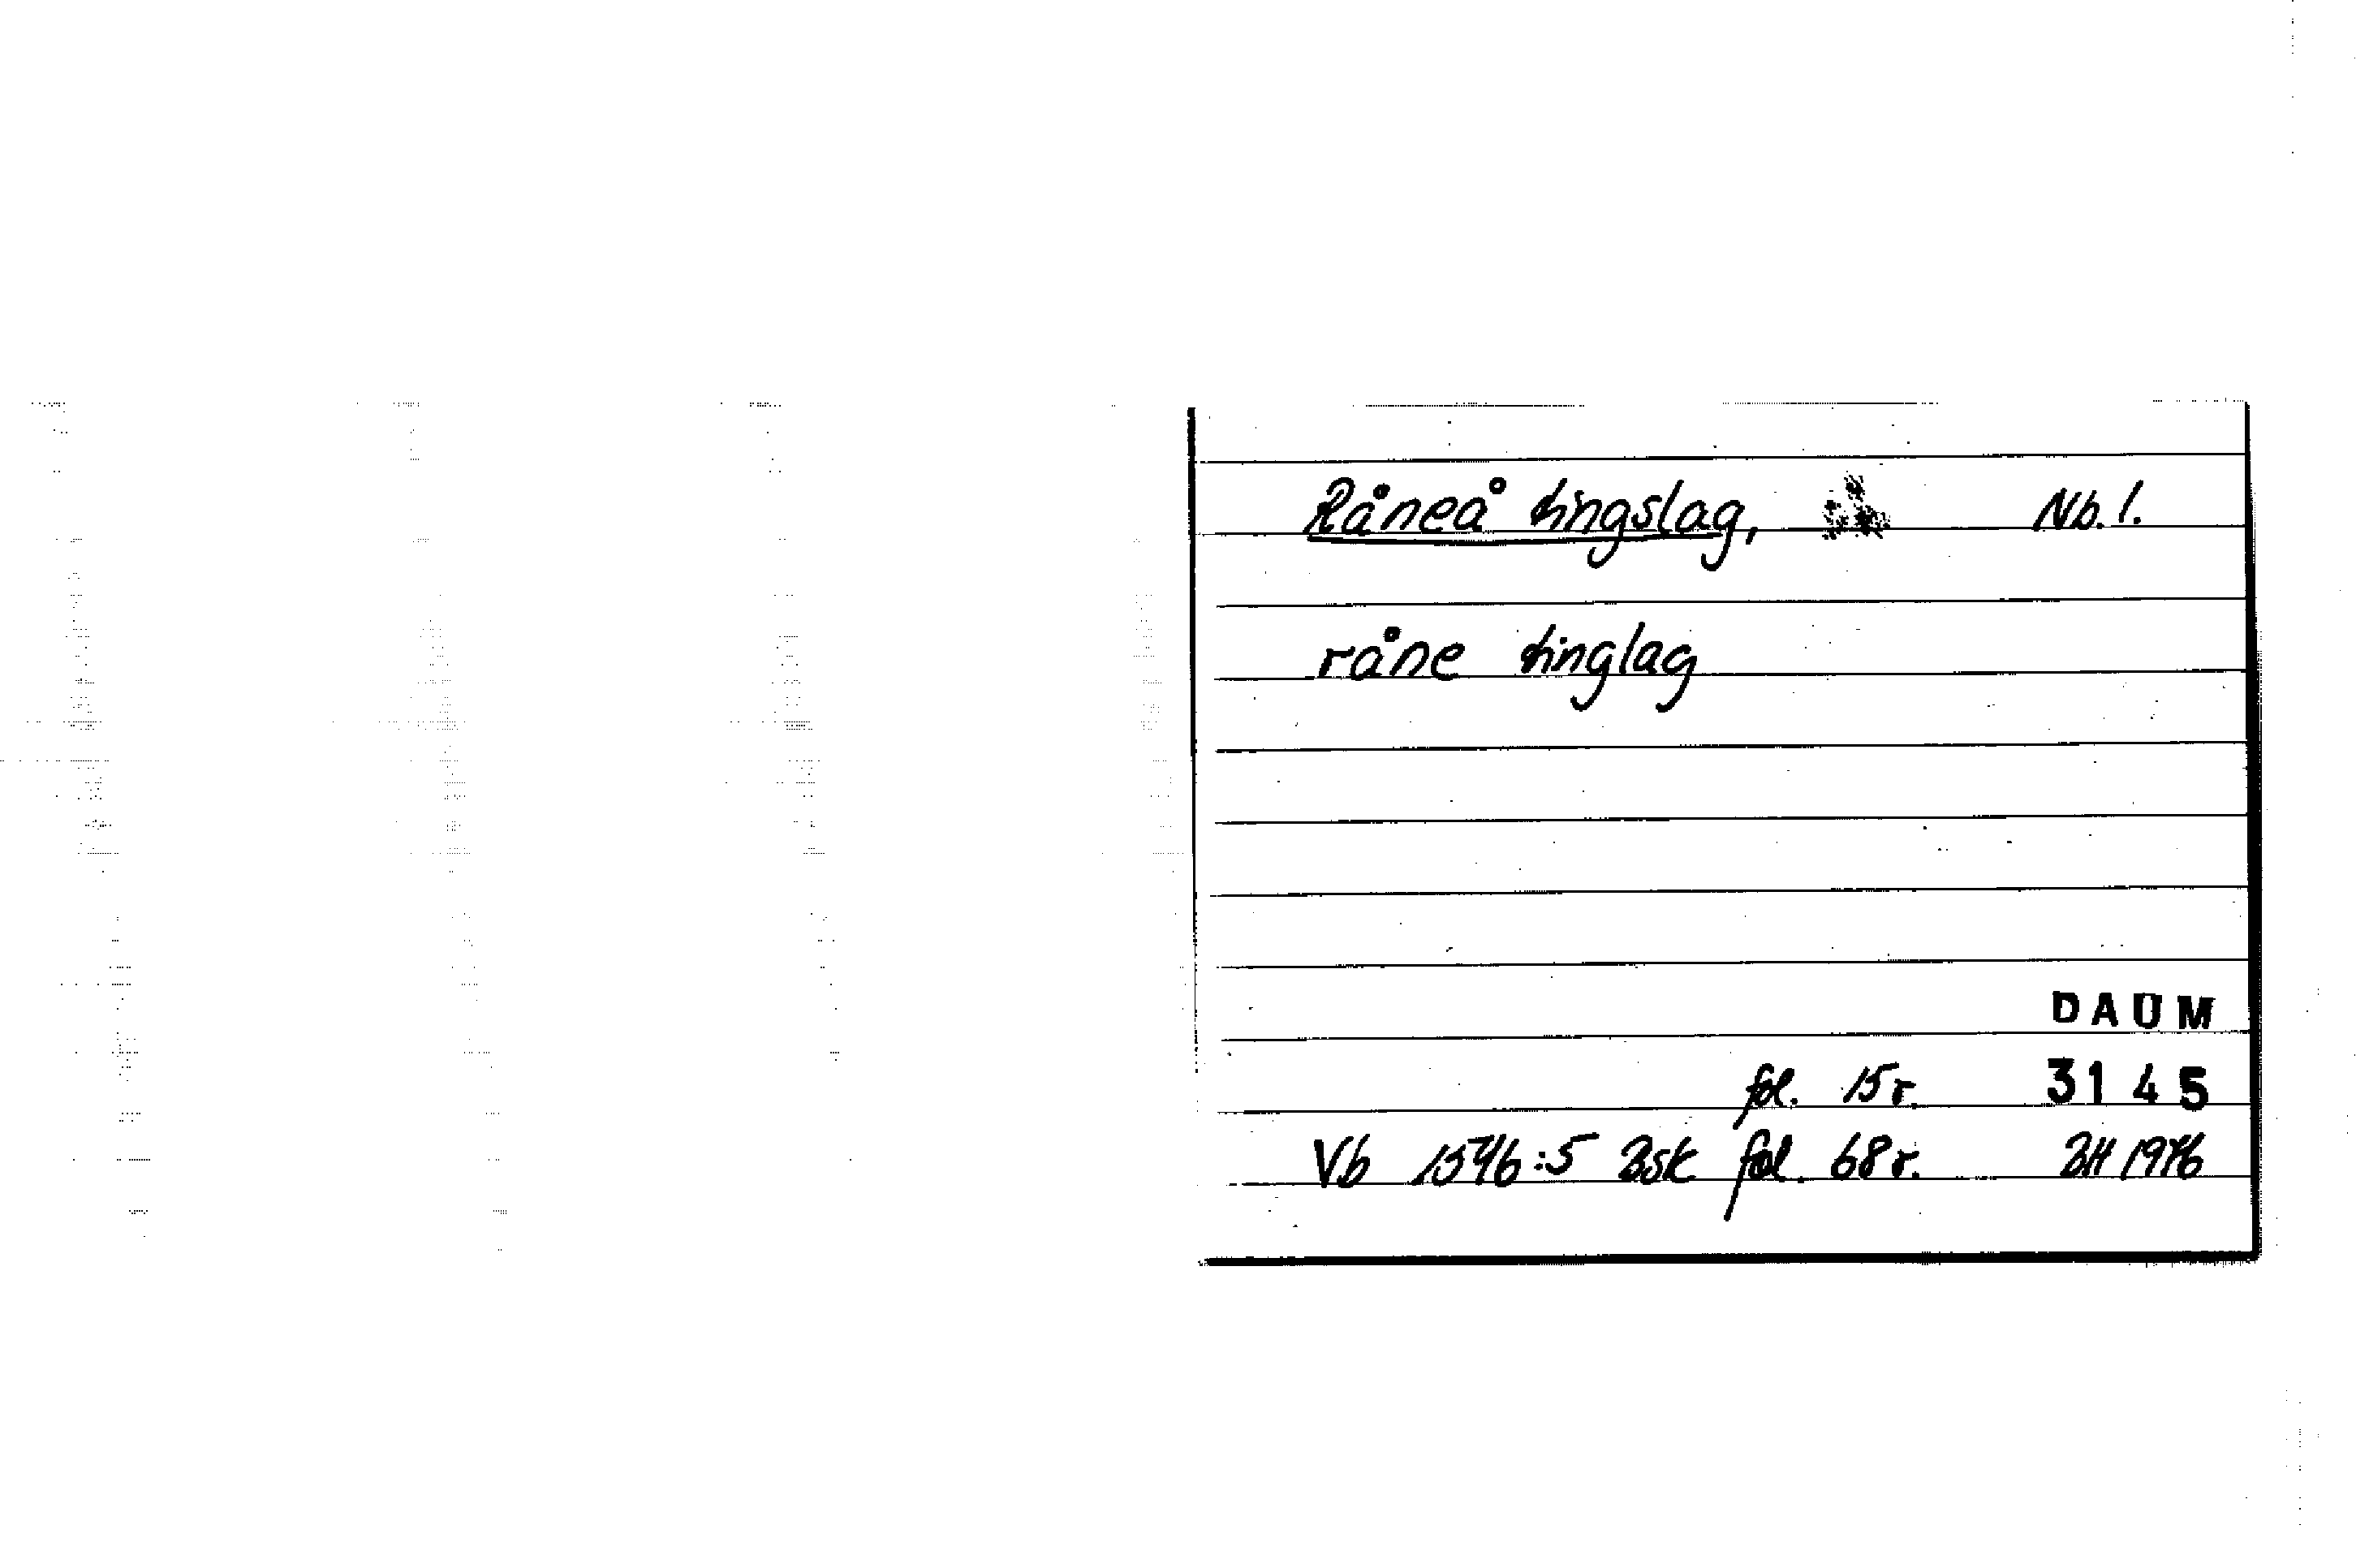 Råneå tingslag, Nb. l.
råne tinglag
DAUM
fol. 15 r. 3145
Vb 1546:5 Bsk fol. 68 r. BH 1976